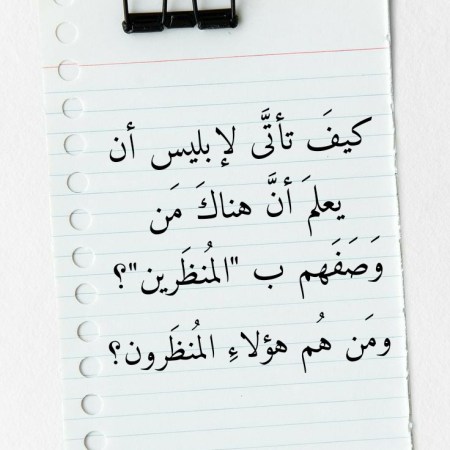 كيفَ تأتَّى لإبليس أن
يعلمَ أنَّ هناكَ مَن
وَصَفَهم ب "المُنظَرين"؟
ومَن هُم هؤلاءِ المُنظَرون؟